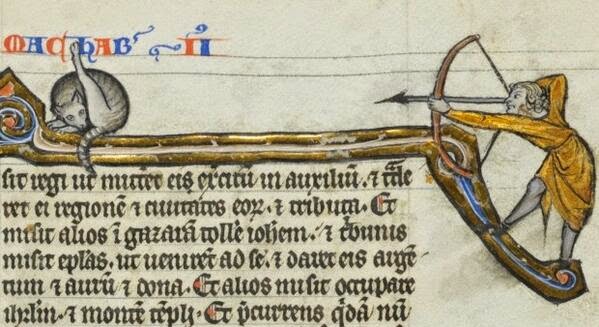 MACHAB' II
sit regi ut mitteret eis exercitū in auxiliū. ⁊ tᵃde
ret ei regionē ⁊ ciuitates eoꝝ. ⁊ tributa. Et
misit alios ī gazaram tolle iohem. ⁊ tͥbunis
misit eplas. ut uenirēt ad se. ⁊ daret eis argē
tum ⁊ aurū ⁊ dona. Et alios misit occupare
ihrlm. ⁊ montē tēpli. Et p̄currens qͥdā nū